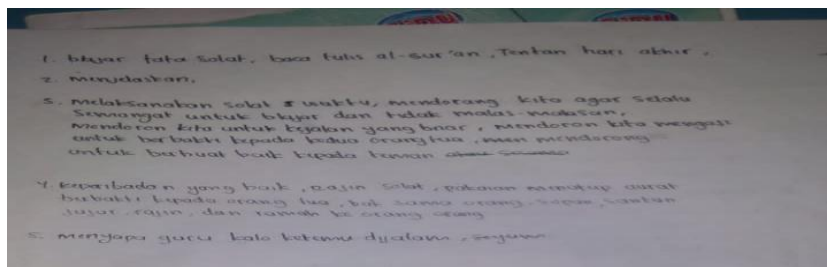 1. blajar tata solat, baca tulis al-qur'an, Tentan hari akhir,
2. menjelaskan,
3. melaksanakan solat 5 waktu, mendorang kita agar selalu
semangat untuk blajar dan tidak malas-malasan,
mendoron kita untuk bejalan yang bnar, mendoron kita
untuk berbakti kepada kedua orang tua, men mendorong
untuk berbuat baik kepada teman
4. keperibadan yang baik, rajin solat, pakaian menutup aurat
berbakti kepada orang tua, baik sama orang, sopan, santun
jujur, rajin, dan ramah ke orang orang
5. menyapa guru kalo ketemu dijalam, seyum